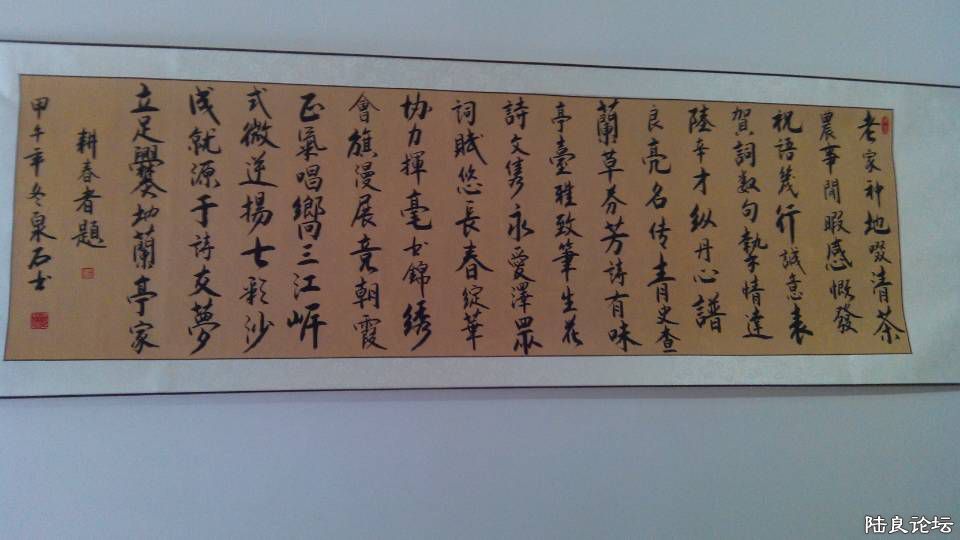 老家神地啜清茶
農事閒暇感慨發
祝語幾行誠意表
賀詞数句摯情達
陸辛才纵丹心譜
良亮名传青史查
蘭草芬芳詩有味
亭臺雅致筆生花
詩文隽永爱澤眾
詞賦悠長春綻華
协力揮毫书錦绣
會旗漫展竞朝霞
正氣唱響三江岍
式微逆揚七彩沙
成就源于詩友夢
立足爨坳蘭亭家
耕春者題
甲午年冬泉石书
陆良论坛